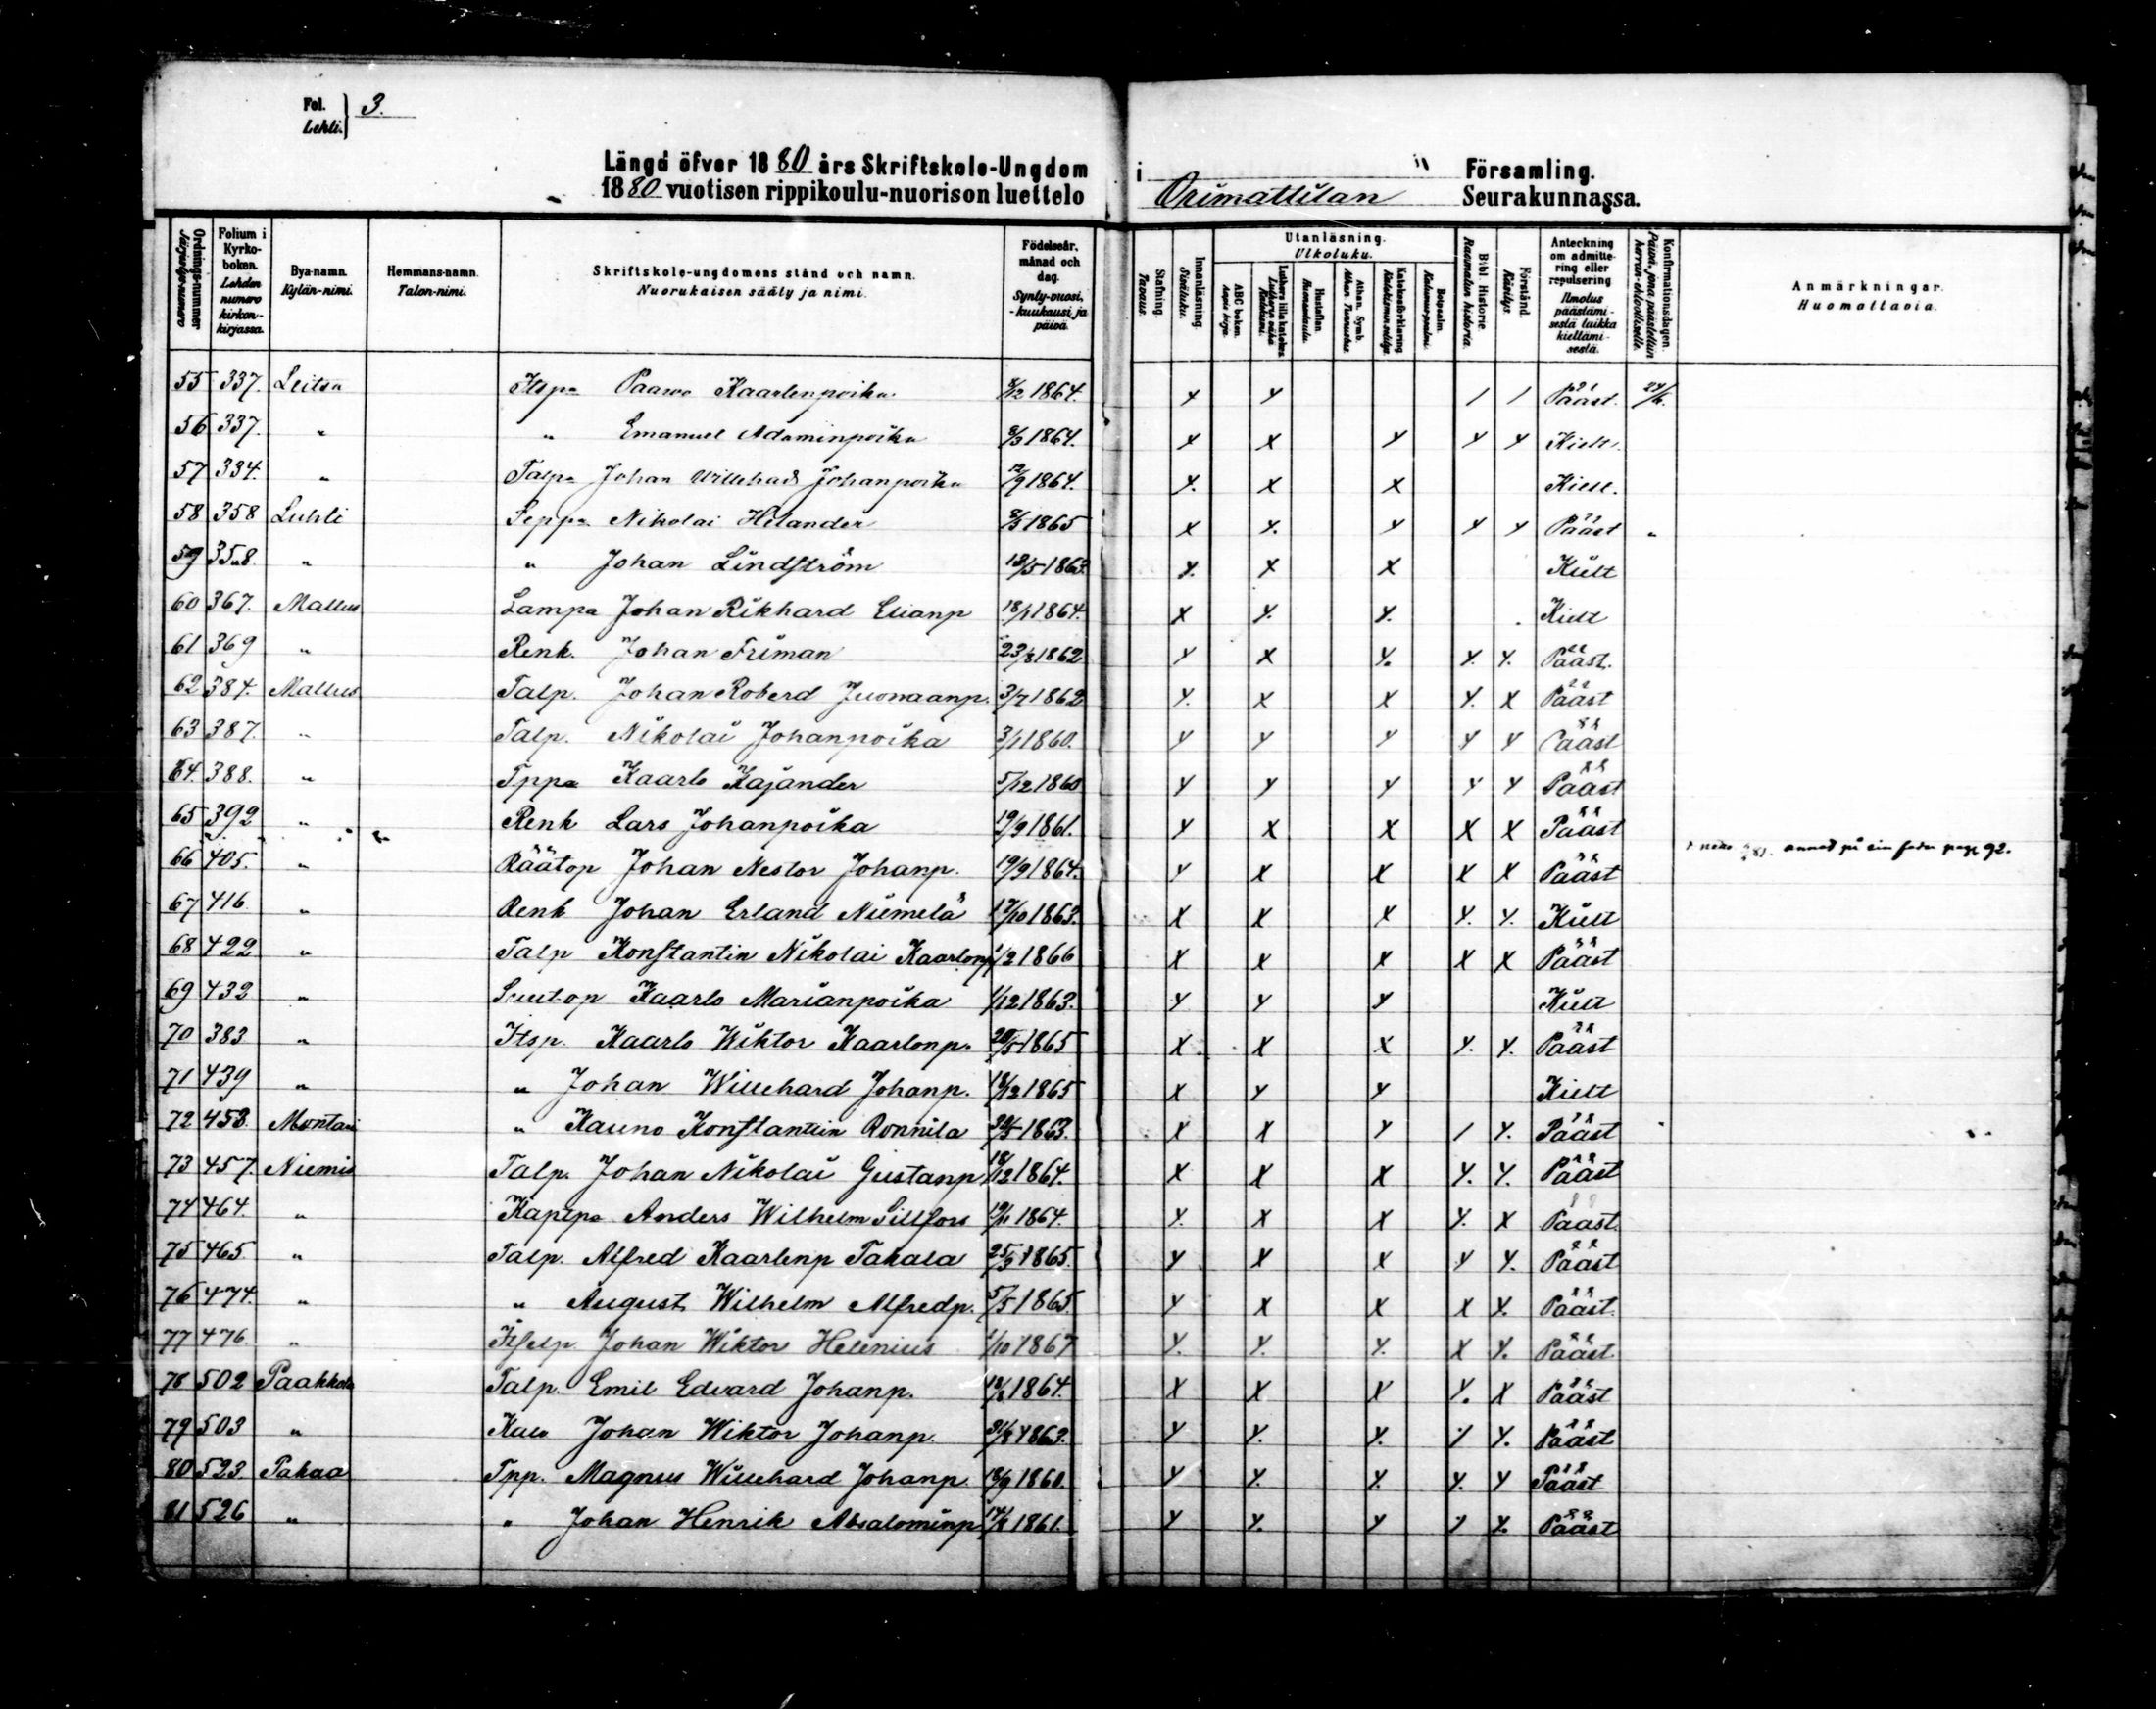 Fol. Lehti. 3.
Längd öfver 1880 års Skriftskole-Ungdom i " Församling.
1880 vuotisen rippikoulu-nuorison luettelo Orimattilan Seurakunnassa.
Ordnings-nummer Järjestys-numero
Folium i Kyrko-boken. Lehden numero kirkon-kirjassa.
Bya-namn. Kylän-nimi.
Hemmans-namn. Talon-nimi.
Skriftskole-ungdomens stånd och namn. Nuorukaisen sääty ja nimi.
Födelseår, månad och dag. Synty-vuosi, -kuukausi ja päivä.
Stafning. Tavaus.
Innanläsning. Sisäluku.
Utanläsning. Ulkoluku.
ABC boken. Aapis kirja.
Luthers lilla katekes Lutherin vähä Katekismi.
Hustaflan. Huoneentaulu.
Athan. Symb. Athan. Tunnustus
Katekesförklaring Katekismus selitys
Botpsalm. Katumus-psalmi.
Bibl. Historie. Raamatun historia.
Förstånd. Käsitys.
Anteckning om admittering eller repulsering Ilmoitus päästämisestä taikka kieltämisestä.
Konfirmationsdagen.
Anmärkningar. Huomattavia.
55 337. Leitsa Itspa Paawo Kaarlenpoika 8/12 1864. x x / / Pääst. 24/6.
56 337. " " Emanuel Adaminpoika 8/3 1864. x x x x x Kielt.
57 334. " Talpa Johan Willehad Johanpoika 12/9 1864. x. x x Kielt.
58 358 Luhti Seppa Nikolai Helander 8/5 1865 x x. x x x Pääst "
59 358. " " Johan Lindström 18/5 1863. x. x x Kielt
60 367. Mallus Lampa Johan Rikhard Elianp 18/1 1864. x x. x. Kielt
61 369 " Renk. Johan Friman 23/8 1862 x x x. x. x. Pääst.
62 384. Mallus Talp. Johan Roberd Juomaanp. 3/7 1862 x. x x x. x Pääst
63 387. " Talp. Nikolai Johanpoika 3/1 1860. x x x x x Pääst
64. 388. " Tppa Kaarlo Kajander 5/12 1860 x x x x x Pääst
65 392 " Renk Lars Johanpoika 19/9 1861. x x x x x Pääst
66 405. " Räätop Johan Nestor Johanp. 19/9 1864. x x x x x Pääst page 92.
67 416. " Renk Johan Erland Niemelä 17/10 1863. x x x x. x. Kielt
68 422 " Talp Konstantin Nikolai Kaarlonp 1/2 1866 x x x x x Pääst
69 432 " Suutop Kaarlo Marianpoika 1/12 1863. x x x Kielt
70 383 " Itsp. Kaarlo Wiktor Kaarlonp. 20/5 1865 x x x x. x. Pääst
71 439 " " Johan Willehard Johanp. 18/12 1865 x x x Kielt
72 458. Montari " Kauno Konstantin Ronnila 30/5 1863. x x x / x. Pääst
73 457. Niemis Talp. Johan Nikolai Gustanp 18/12 1864. x x x x. x. Pääst
74 464. " Anders Wilhelm Sillfors 19/11 1864. x. x x x. x Pääst.
75 465. " Talp. Alfred Kaarlenp Takala 25/3 1865. x x x x x. Pääst
76 474. " " August Wilhelm Alfredp. 5/5 1865. x x x x x. Pääst.
77 476. " Johan Wiktor Helenius 1/10 1867 x. x. x. x x. Pääst.
78 502 Paakkola Talp. Emil Edvard Johanp. 12/8 1864. x x x x. x Pääst
79 503 " Johan Wiktor Johanp. 31/8 1863. x x. x. / x. Pääst
80 523 Pakaa Tpp. Magnus Willehard Johanp. 18/9 1860. x x. x. x. x Pääst
81 526 " " Johan Henrik Absalominp 14/8 1861. x x. x / x. Pääst